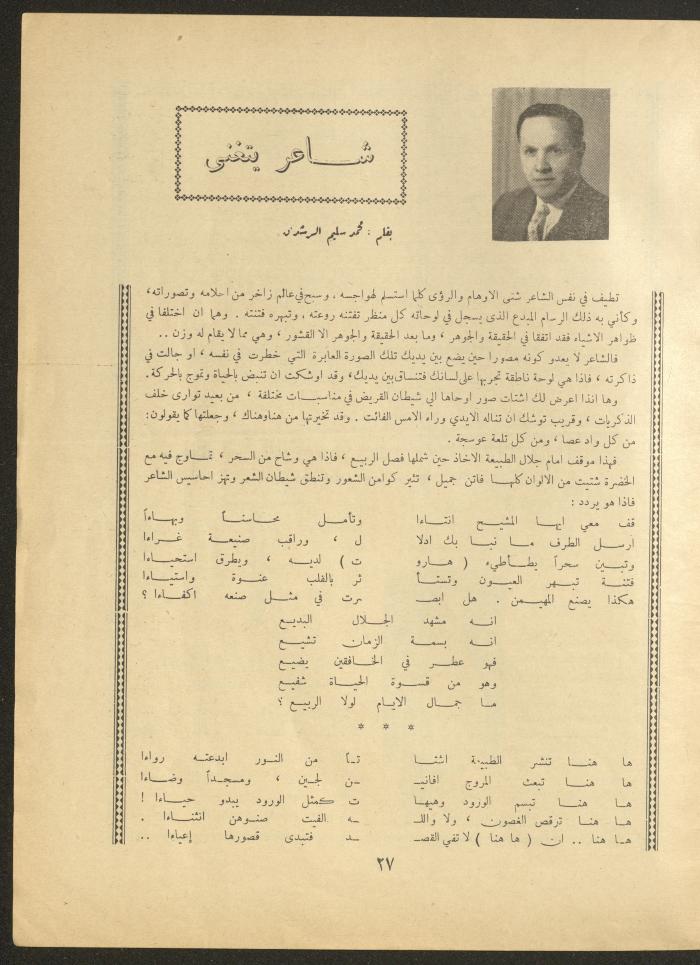 شاعر يتغنى
بقلم : محمد سليم الرشدان
تطيف في نفس الشاعر شتى الاوهام والرؤى كلما استسلم لهواجسه ، وسبح في عالم زاخر من احلامه وتصوراته،
وكأني به ذلك الرسام المبدع الذي يسجل في لوحاته كل منظر تفتنه روعته ، وتبهره فتنته . وهما ان اختلفا في
ظواهر الاشياء فقد اتفقا في الحقيقة والجوهر ، وما بعد الحقيقة والجوهر الا القشور ، وهي مما لا يقام له وزن ..
فالشاعر لا يعدو كونه مصورا حين يضع بين يديك تلك الصورة العابرة التي خطرت في نفسه ، او جالت في
ذاكرته ، فاذا هي لوحة ناطقة تجريها على لسانك فتنساق بين يديك، وقد اوشكت ان تنبض بالحياة وتموج بالحركة.
وها انذا اعرض لك اشتات صور اوحاها الي شيطان القريض في مناسبات مختلفة ، من بعيد توارى خلف
الذكريات ، وقريب توشك ان تناله الايدي وراء الامس الفائت . وقد تخيرتها من هنا وهناك ، وجعلتها كما يقولون:
من كل واد عصا ، ومن كل تلعة عوسجة .
فهذا موقف امام جلال الطبيعة الاخاذ حين شملها فصل الربيع ، فاذا هي وشاح من السحر ، تماوج فيه مع
الخضرة شتيت من الالوان كلها فاتن جميل ، تثير كوامن الشعور وتنطق شيطان الشعر وتهز احاسيس الشاعر
فاذا هو يردد :
قف معي ايها المشيح انتاءا وتأمل محاسناً وبهاءاً
ارسل الطرف ما نبا بك ادلا ل ، وراقب صنيعة غراءا
وتبين سحراً يطأطيء ( هارو ت ) لديه ، ويطرق استحياءا
فتنة تبهر العيون وتستأ ثر بالقلب عنوة واستياءا
هكذا يصنع المهيمن . هل ابصـ ـرت في مثل صنعه اكفاءا ؟
انه مشهد الجلال البديع
انه بسمة الزمان تشيع
فهو عطر في الخافقين يضيع
وهو من قسوة الحياة شفيع
ما جمال الايام لولا الربيع ؟
* * *
ها هنا تنشر الطبيعة اشتا تاً من النور ابدعته رواءا
ها هنا تبعث المروج افانيـ ـن لجين ، ومسجداً وضاءا
ها هنا تبسم الورود وهيها ت كمثل الورود يبدو حياءا !
ها هنا ترقص الغصون ، ولا واللـ ـه الفيت صنوهن انثناءا .
ها هنا .. ان ( ها هنا ) لا تفي القصـ ـد فتبدى قصورها إعياءا ..
٢٧